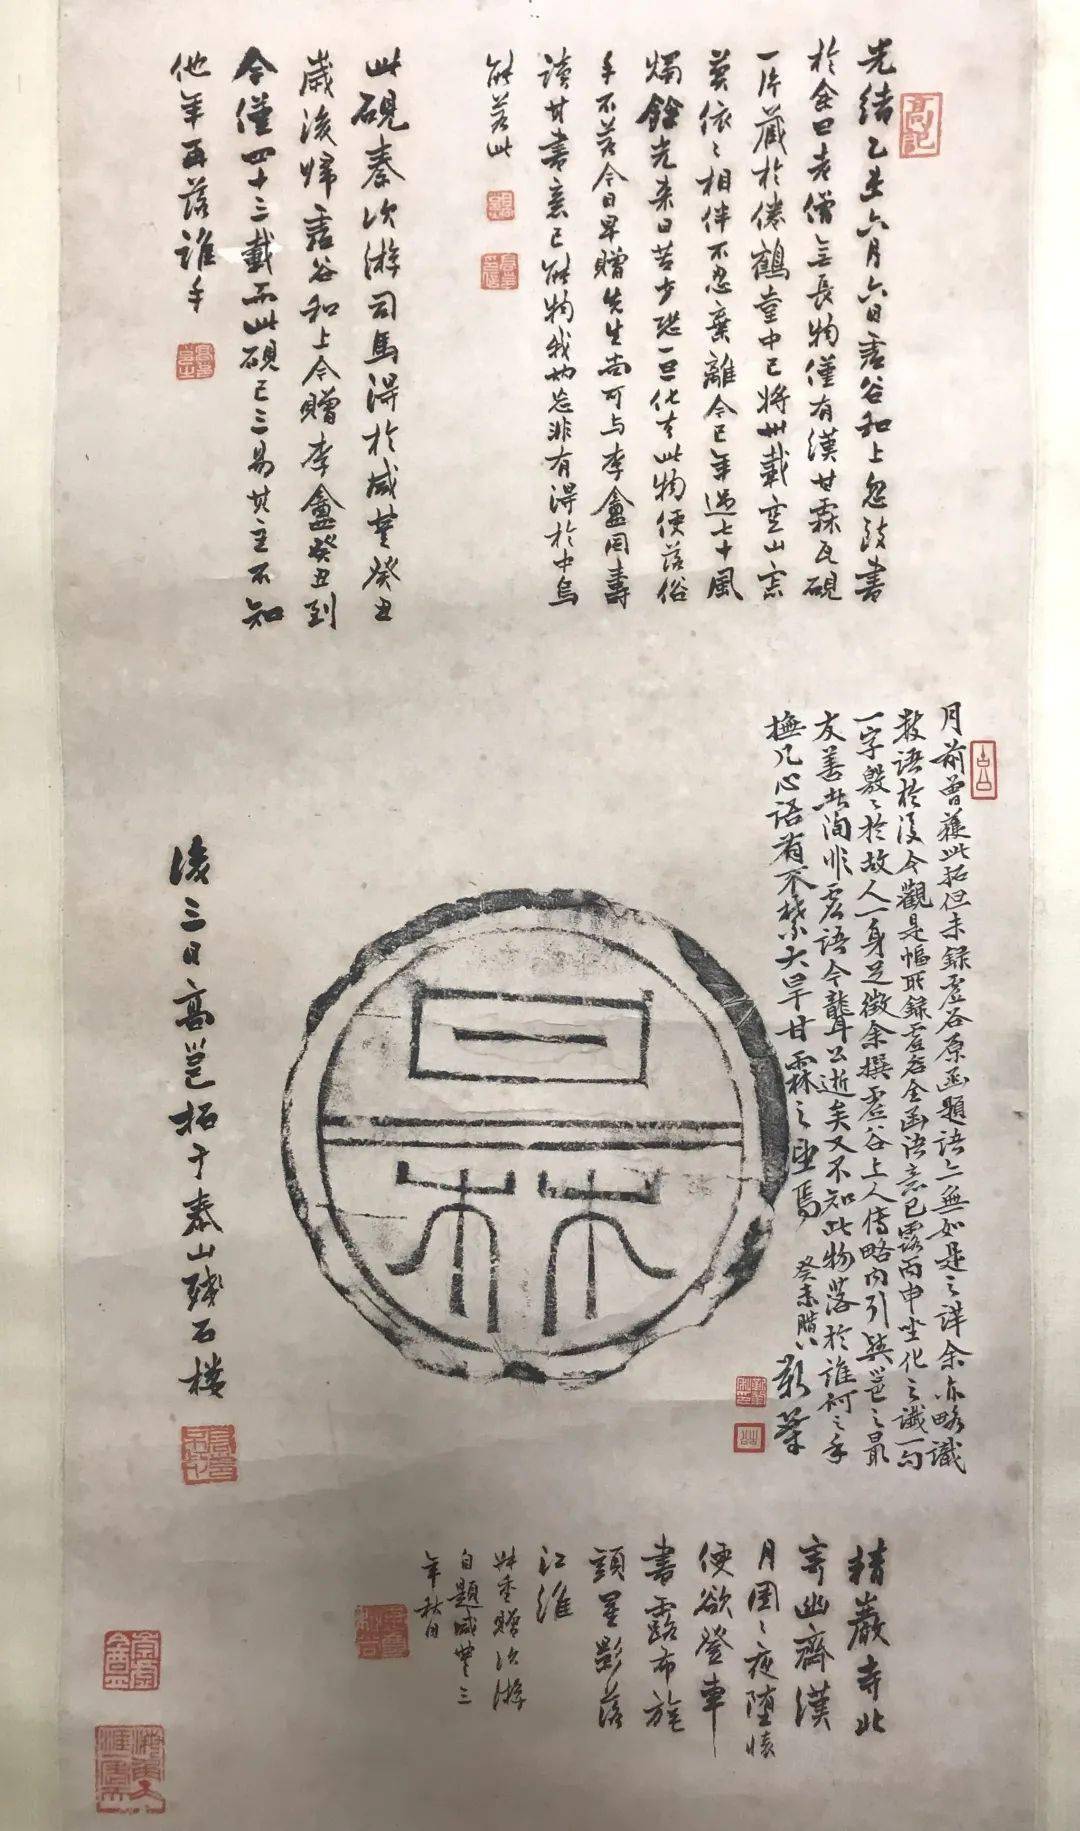 光緒乙未六月六日虛谷和上忽致書
於余曰老僧無長物僅有漢甘霖瓦硯
一片藏於倦鶴堂中已將卅載空山寂
莫依依相伴不忍棄離今已年過七十風
燭餘光來日苦少恐一旦化去此物便落俗
手不若今日早贈先生尚可與李盦同壽
讀其書意已能物我兩忘非有得於中烏
能若此
此硯秦次游司馬得於咸豐癸丑
歲後歸虛谷和上今贈李盦癸丑到
今僅四十三載而此硯已三易其主不知
他年再落誰手
月前曾獲此拓但未錄虛谷原函題語亦無如是之詳余亦略識
數語於後今觀是幅所錄虛谷全函語意已露丙申坐化之讖一句
一字殷殷於故人一身足徵余撰虛谷上人傳略內引與邕之最
友善此洵非虛語今聾公逝矣又不知此物落於誰何之手
撫几心語有不禁大旱甘霖之望焉
癸未腊八
甘林
後三日高邕拓于泰山殘石樓
精巖寺北
寄幽齋漢
月圓圓夜墮懷
便欲登車
書露布旄
頭星影落
江淮
贈次游
自題咸豐三
年秋日